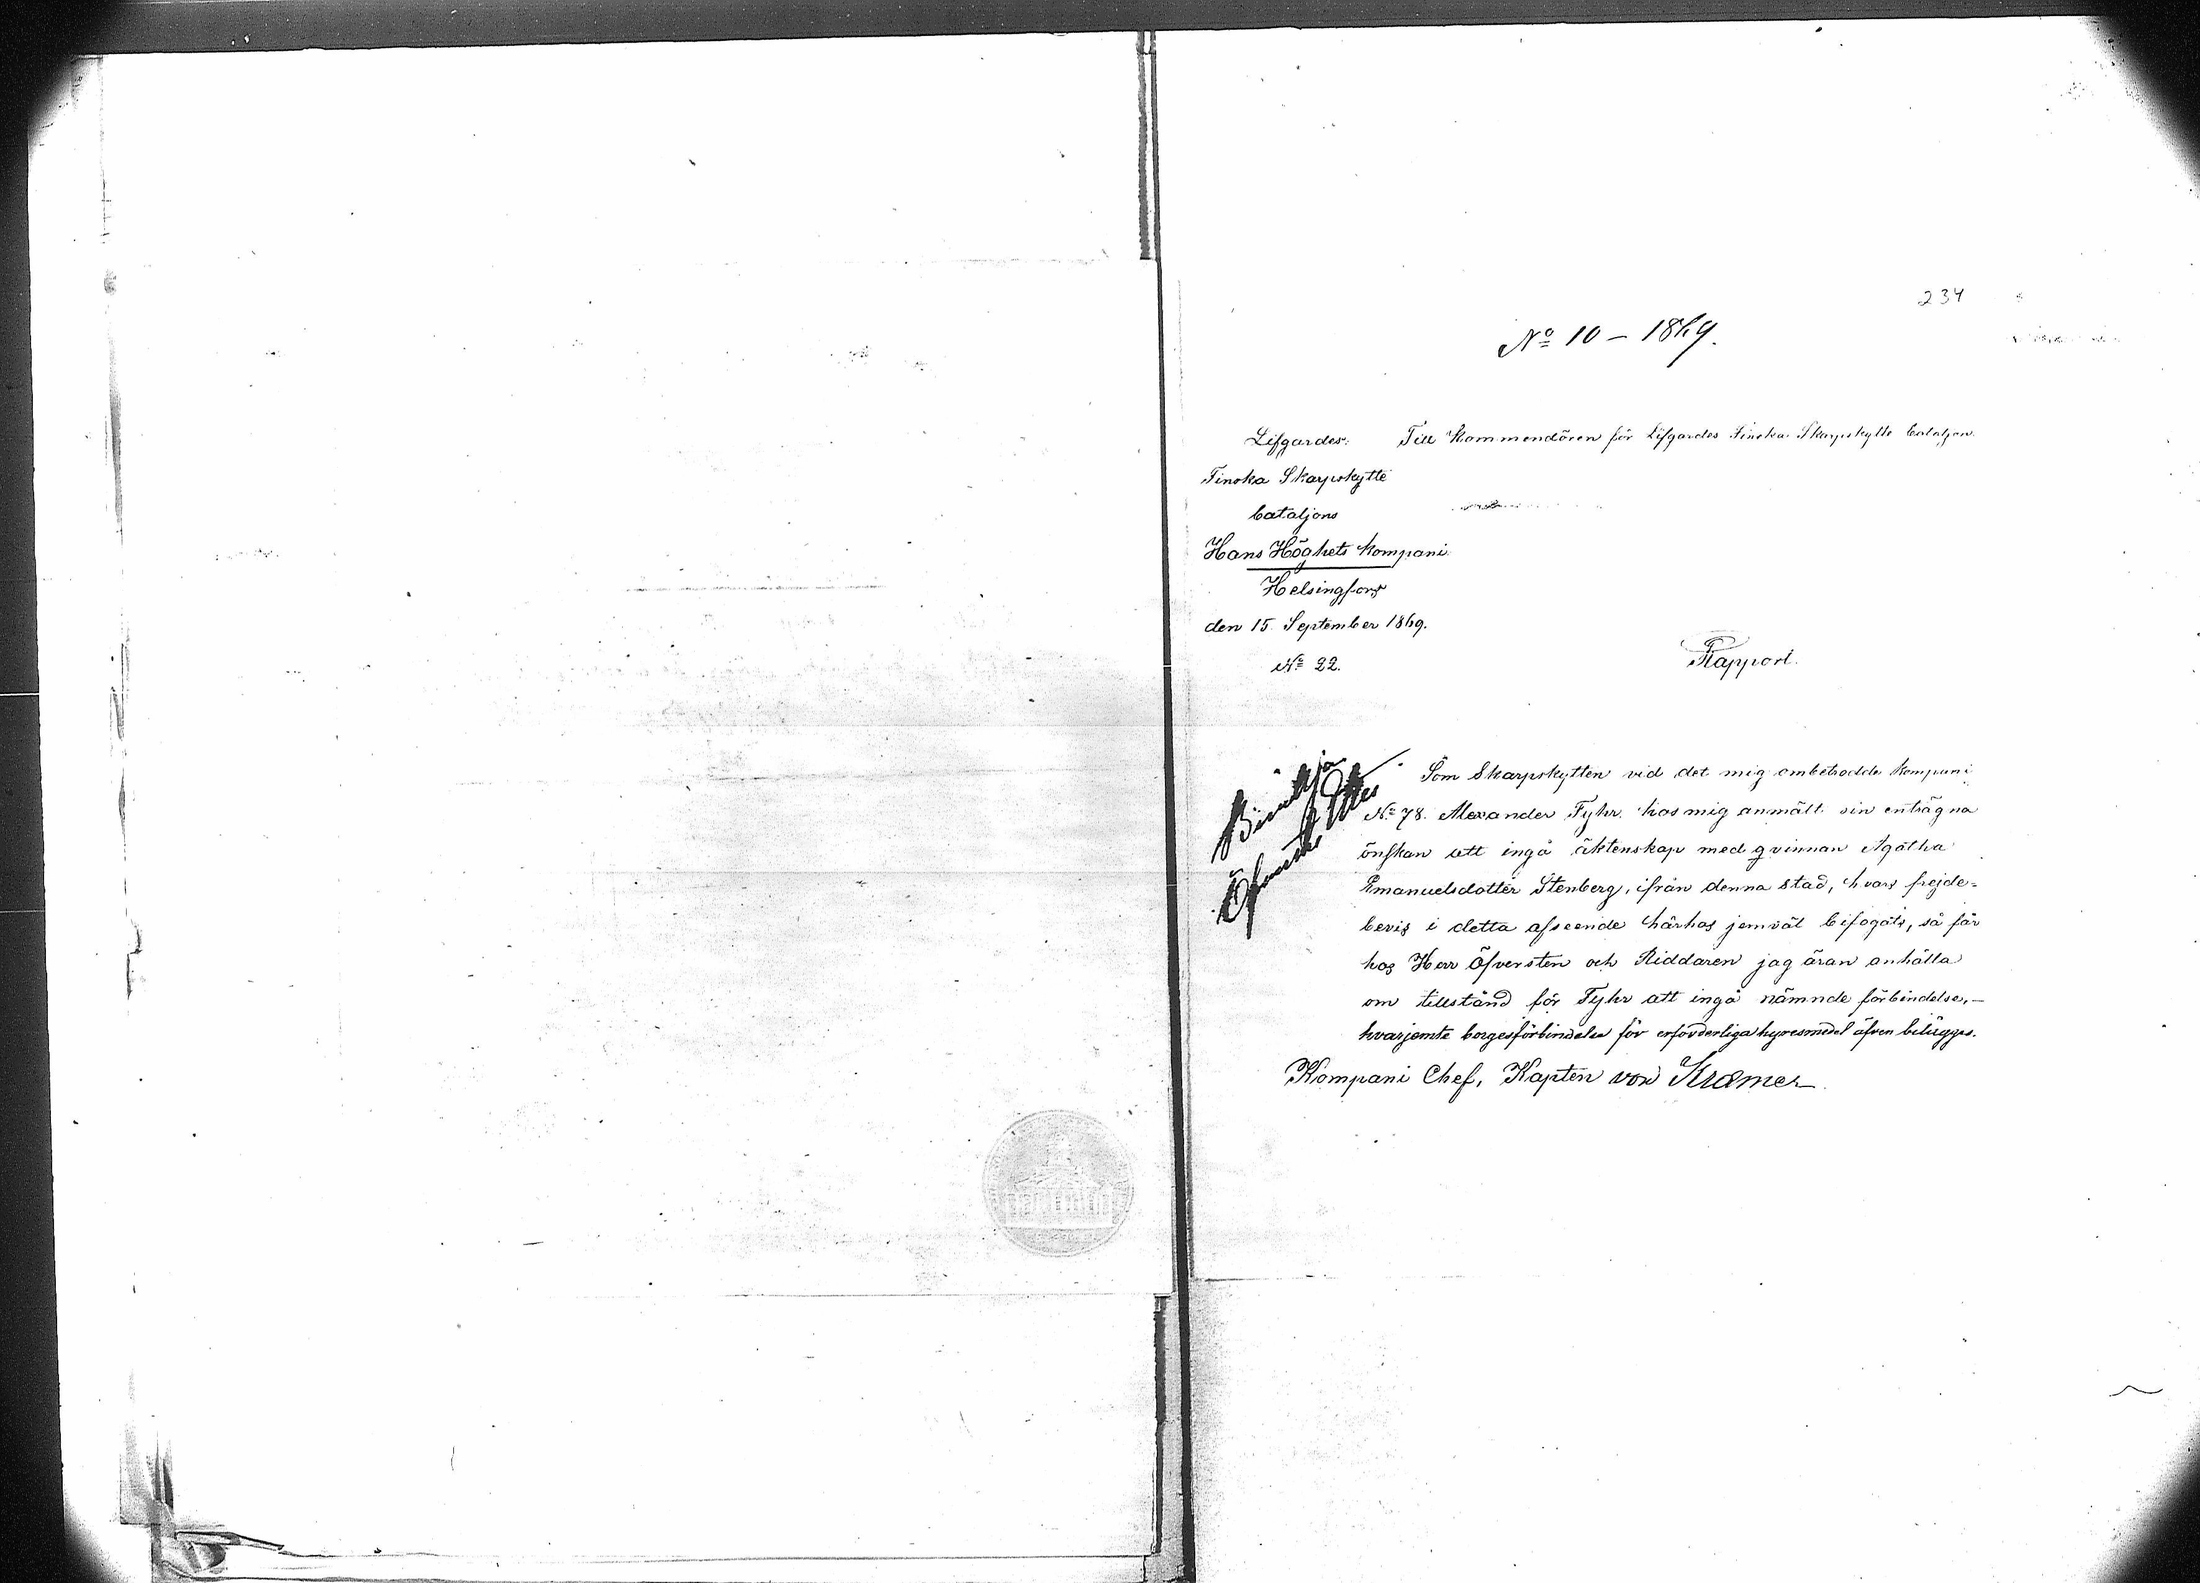 234
No 10 – 1869.
Lifgardes:
Finska Skarpskytte
bataljons
Hans Höghets Kompani
Helsingfors
den 15 September 1869.
No 22.
Till Kommendören för Lifgardes Finska Skarpskytte bataljon.
Rapport.
Som Skarpskytten vid det mig ombetrodde kompani
No 78. Alexander Tyhr. hos mig anmält sin enträgna
önskan att ingå äktenskap med qvinnan Agatha
Emanuelsdotter Stenberg, ifrån denna stad, hvars frejde-
bevis i detta afseende härhos jemväl bifogats, så får
hos Herr Öfversten och Riddaren jag äran anhålla
om tillstånd för Tyhr att ingå nämnde förbindelse,–
hvarjemte borgesförbindelse för erforderliga hyresmedel äfven bilägges.
Kompani Chef, Kapten von Kræmer
Bifalles
Öfverste